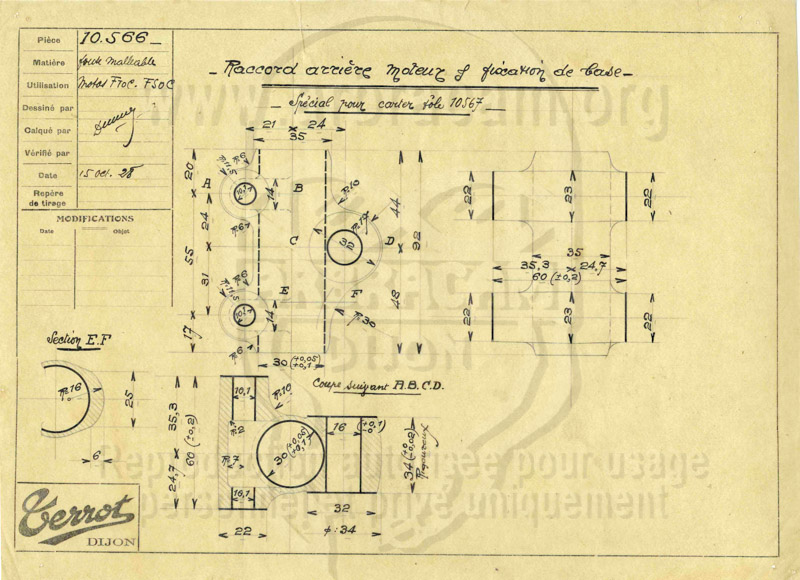 Pièce 10.566_
Matière fonte malléable
Utilisation Motos
Dessiné par
Calqué par
Vérifié par
Date 15 Oct. 28
Repère
de tirage
MODIFICATIONS
Date Objet
_ Raccord arrière moteur & fixation de base_
_ Spécial pour carter tôle 10567_
21 24
35
20
24
55
31
17
A B
C D
E F
R.6
R.11,5
10,1
14
R.6
R.6
R.11,5
14
R.6
R.10
32
R.30
44
48
92
30 (+0,05 +0,1)
22 23 22
35
35,3 24,7
60 (±0,2)
22 23 22
Section E.F
R.16
25
6
Coupe suivant A.B.C.D.
35,3
24,7
60 (±0,2)
10,1
R.10
R.7
16,1
22
30 (+0,05 +0,1)
16
32
φ:34
34
Rigoureux
Terrot
DIJON
Reproduction autorisée pour usage
personnel et privé uniquement